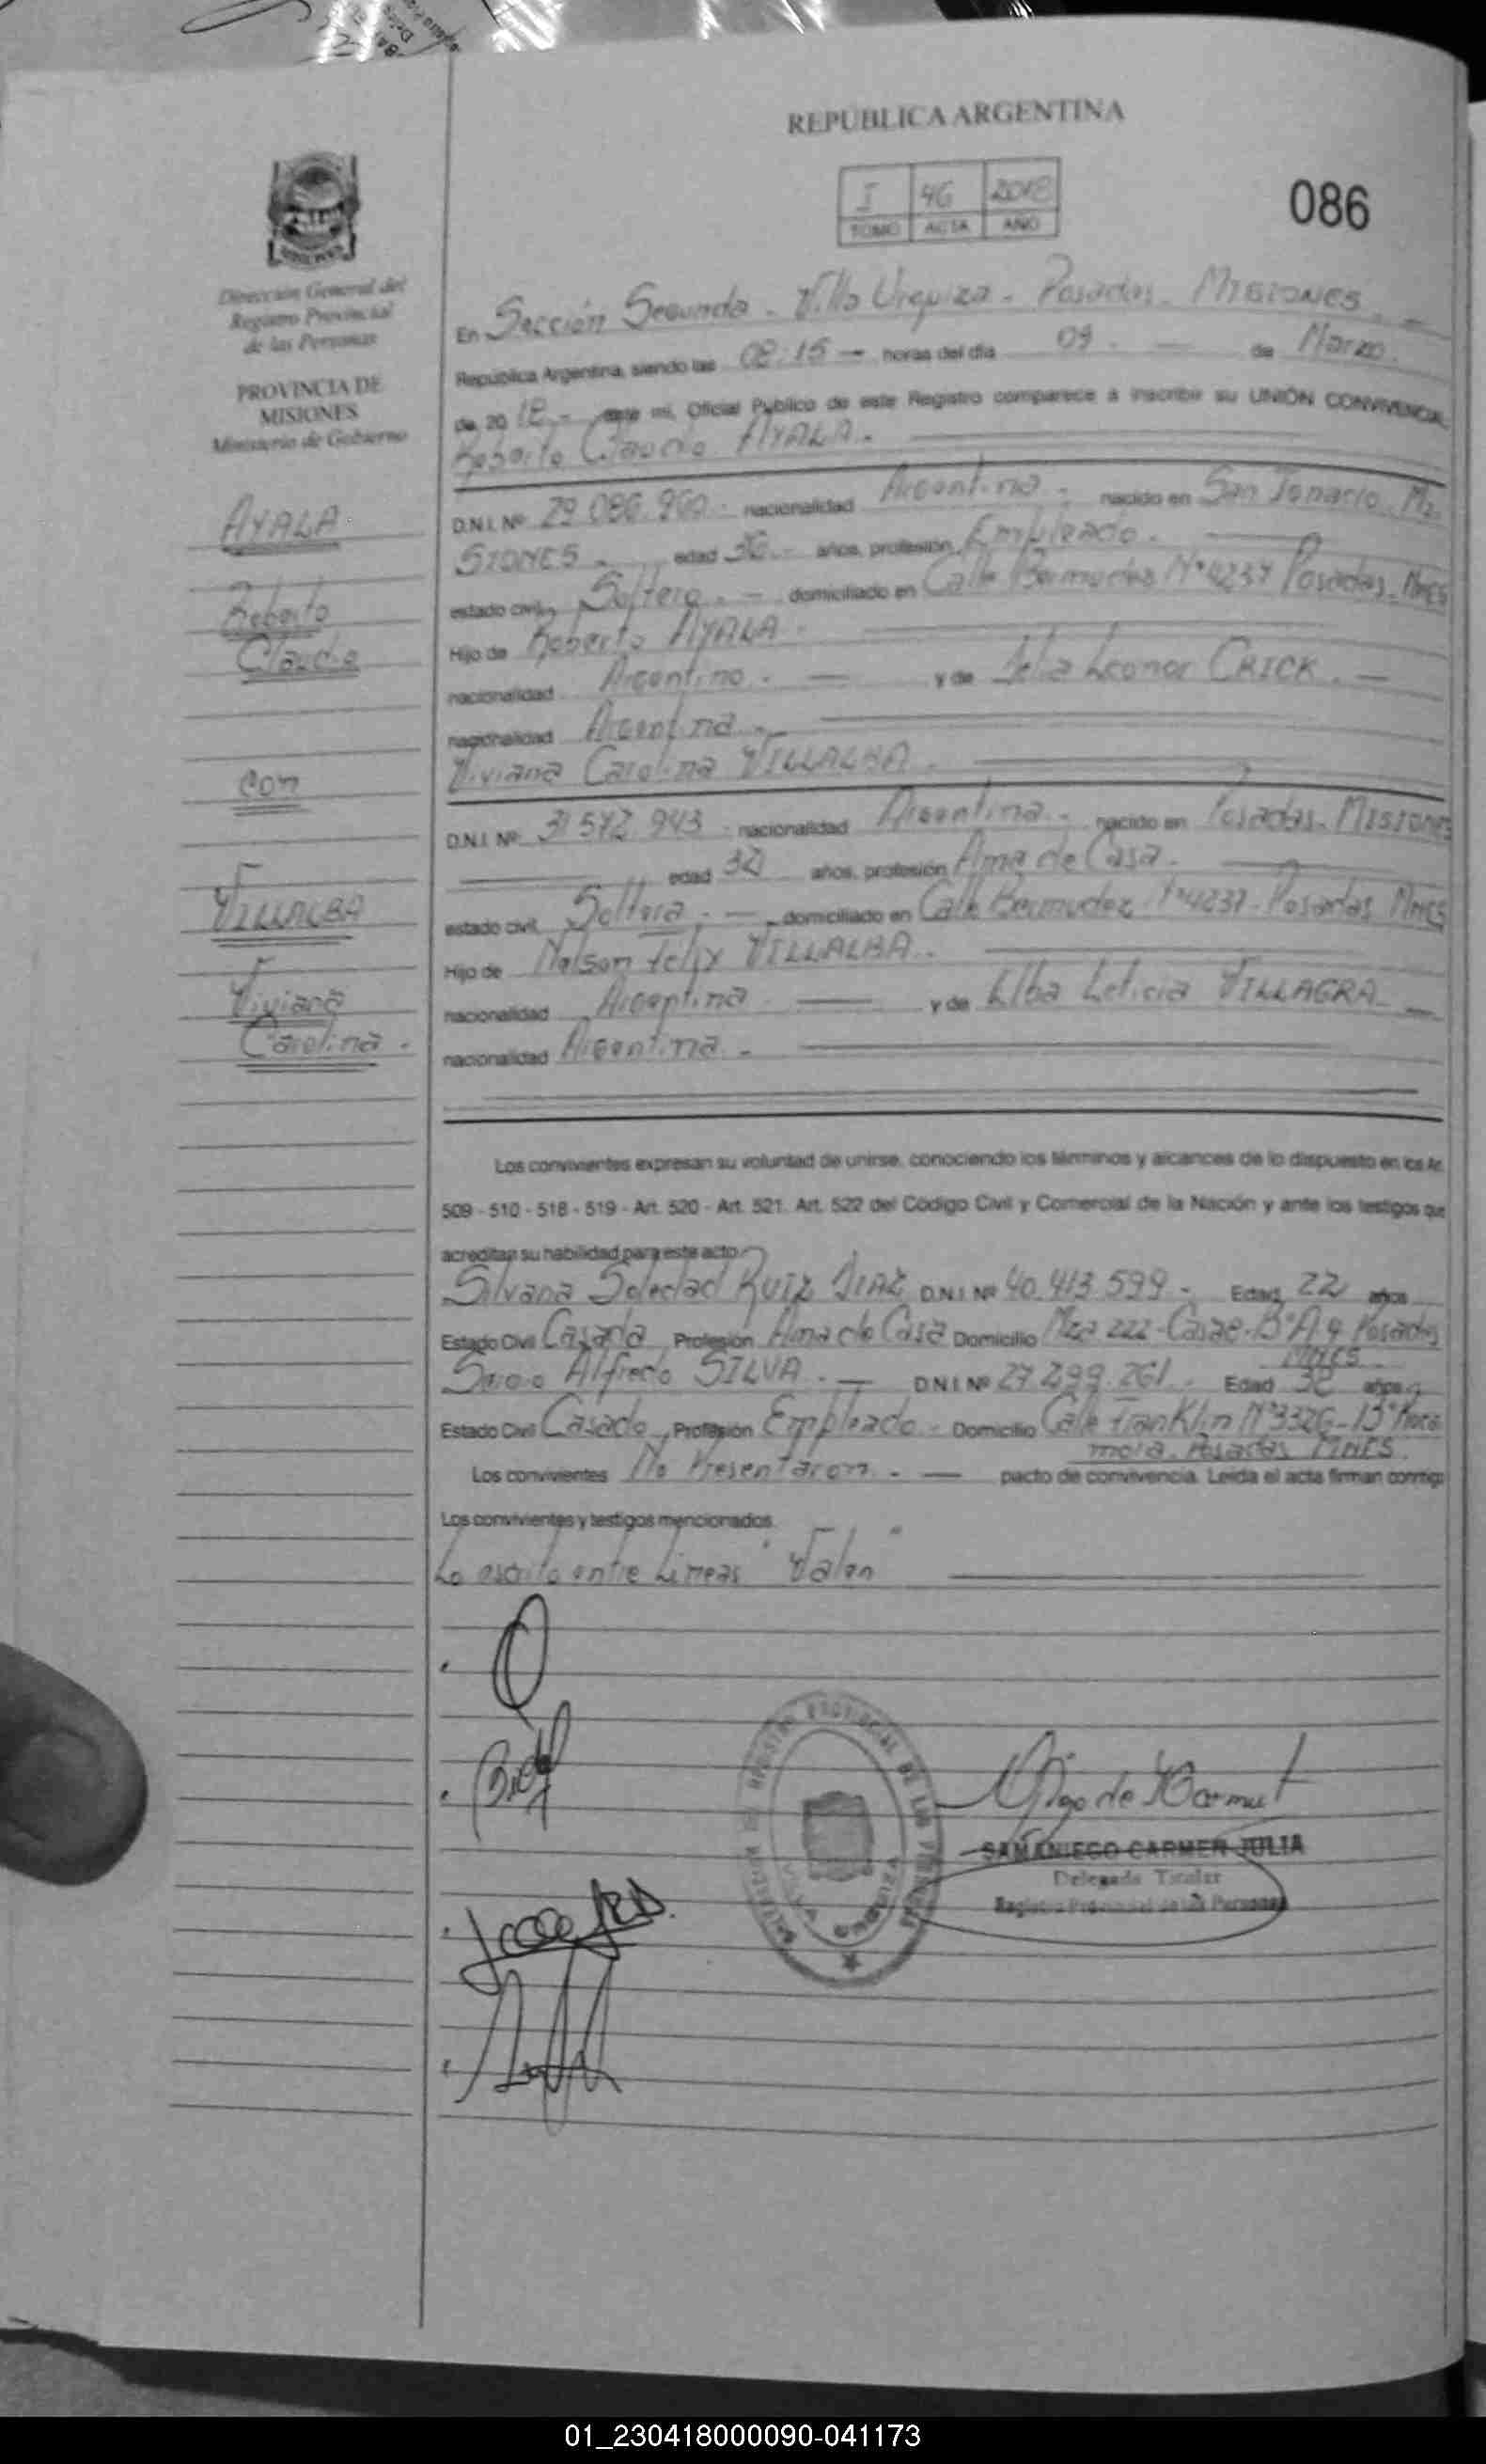 REPÚBLICA ARGENTINA
I 46 2018
TOMO ACTA AÑO
086
Dirección General del
Registro Provincial
de las Personas
PROVINCIA DE
MISIONES
Ministerio de Gobierno
AYALA
Roberto
Claudio
Con
VILLALBA
Viviana
Carolina.
En Sección Segunda - Villa Urquiza - Posadas - MISIONES.
República Argentina, siendo las 08:15 horas del día 09 de Marzo.
de 2018 - ante mi, Oficial Publico de este Registro comparece a inscribir su UNIÓN CONVIVENCIAL
Roberto Claudio AYALA.
D.N.I. Nº 29.086.960 - nacionalidad Argentina - nacido en San Ignacio. MI
SIONES - edad años, profesión Empleado.
estado civil, Soltero. - domiciliado en Calle Bermudez Nº 4237 Posadas. MNES
Hijo de Roberto AYALA.
nacionalidad Argentino. - y de Leonor CRICK. -
nacionalidad Argentina.
Viviana Carolina VILLALBA.
D.N.I. Nº 31 572 943 - nacionalidad Argentina. nacido en Posadas. MISIONES
edad 32 años, profesión Ama de Casa.
estado civil, Soltera. - domiciliado en Calle Bermudez Nº 4237 - Posadas MNES
Hijo de Nelson Felix VILLALBA.
nacionalidad Argentina y de Elba Leticia VILLAGRA
nacionalidad Argentina -
Los convivientes expresan su voluntad de unirse, conociendo los términos y alcances de lo dispuesto en los Ar.
509 - 510 - 518 - 519 - Art. 520 - Art. 521. Art. 522 del Código Civil y Comercial de la Nación y ante los testigos que
acreditan su habilidad para este acto
Silvana Soledad RUIZ DIAZ D.N.I. Nº 40.413.599 - Edad 22 años
Estado Civil Casada Profesión Ama de Casa Domicilio Mza 222 - Posadas
MNES
Sergio Alfredo SILVA. - D.N.I. Nº 27.299.261. Edad 38 años
Estado Civil Casado, Profesión Empleado - Domicilio Calle Franklin Nº 3326 - Bº
Posadas MNES.
Los convivientes No Presentaron. - pacto de convivencia. Leída el acta firman conmigo
Los convivientes y testigos mencionados.
Lo escrito entre Lineas "Valen"
REGISTRO PROVINCIAL DE LAS PERSONAS
SAMANIEGO CARMEN JULIA
Delegada Titular
Registro Provincial de las Personas
01_230418000090-041173